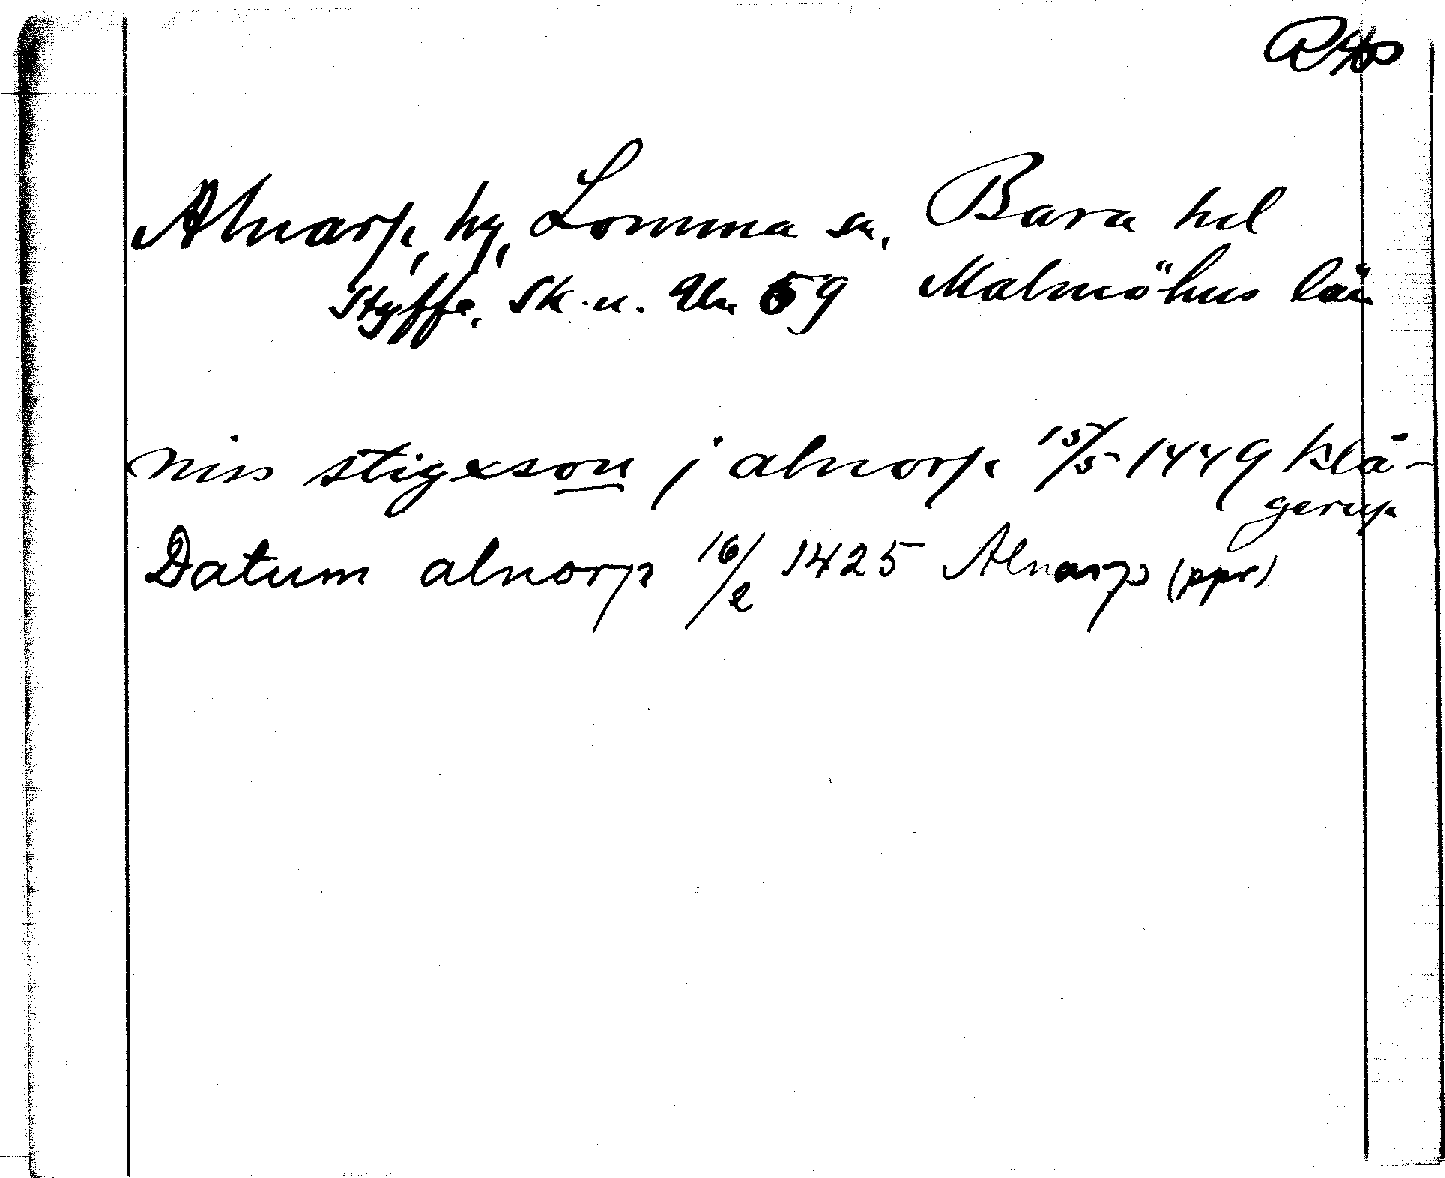 Alnarp, by, Lomma sn. Bara hd
Styffe, Sk. u. Un 59 Malmöhus län
niss stigexson j alnorp 15/5 1449 Klå-
gerup
Datum alnorp 16/2 1425 Alnarp (ppr)